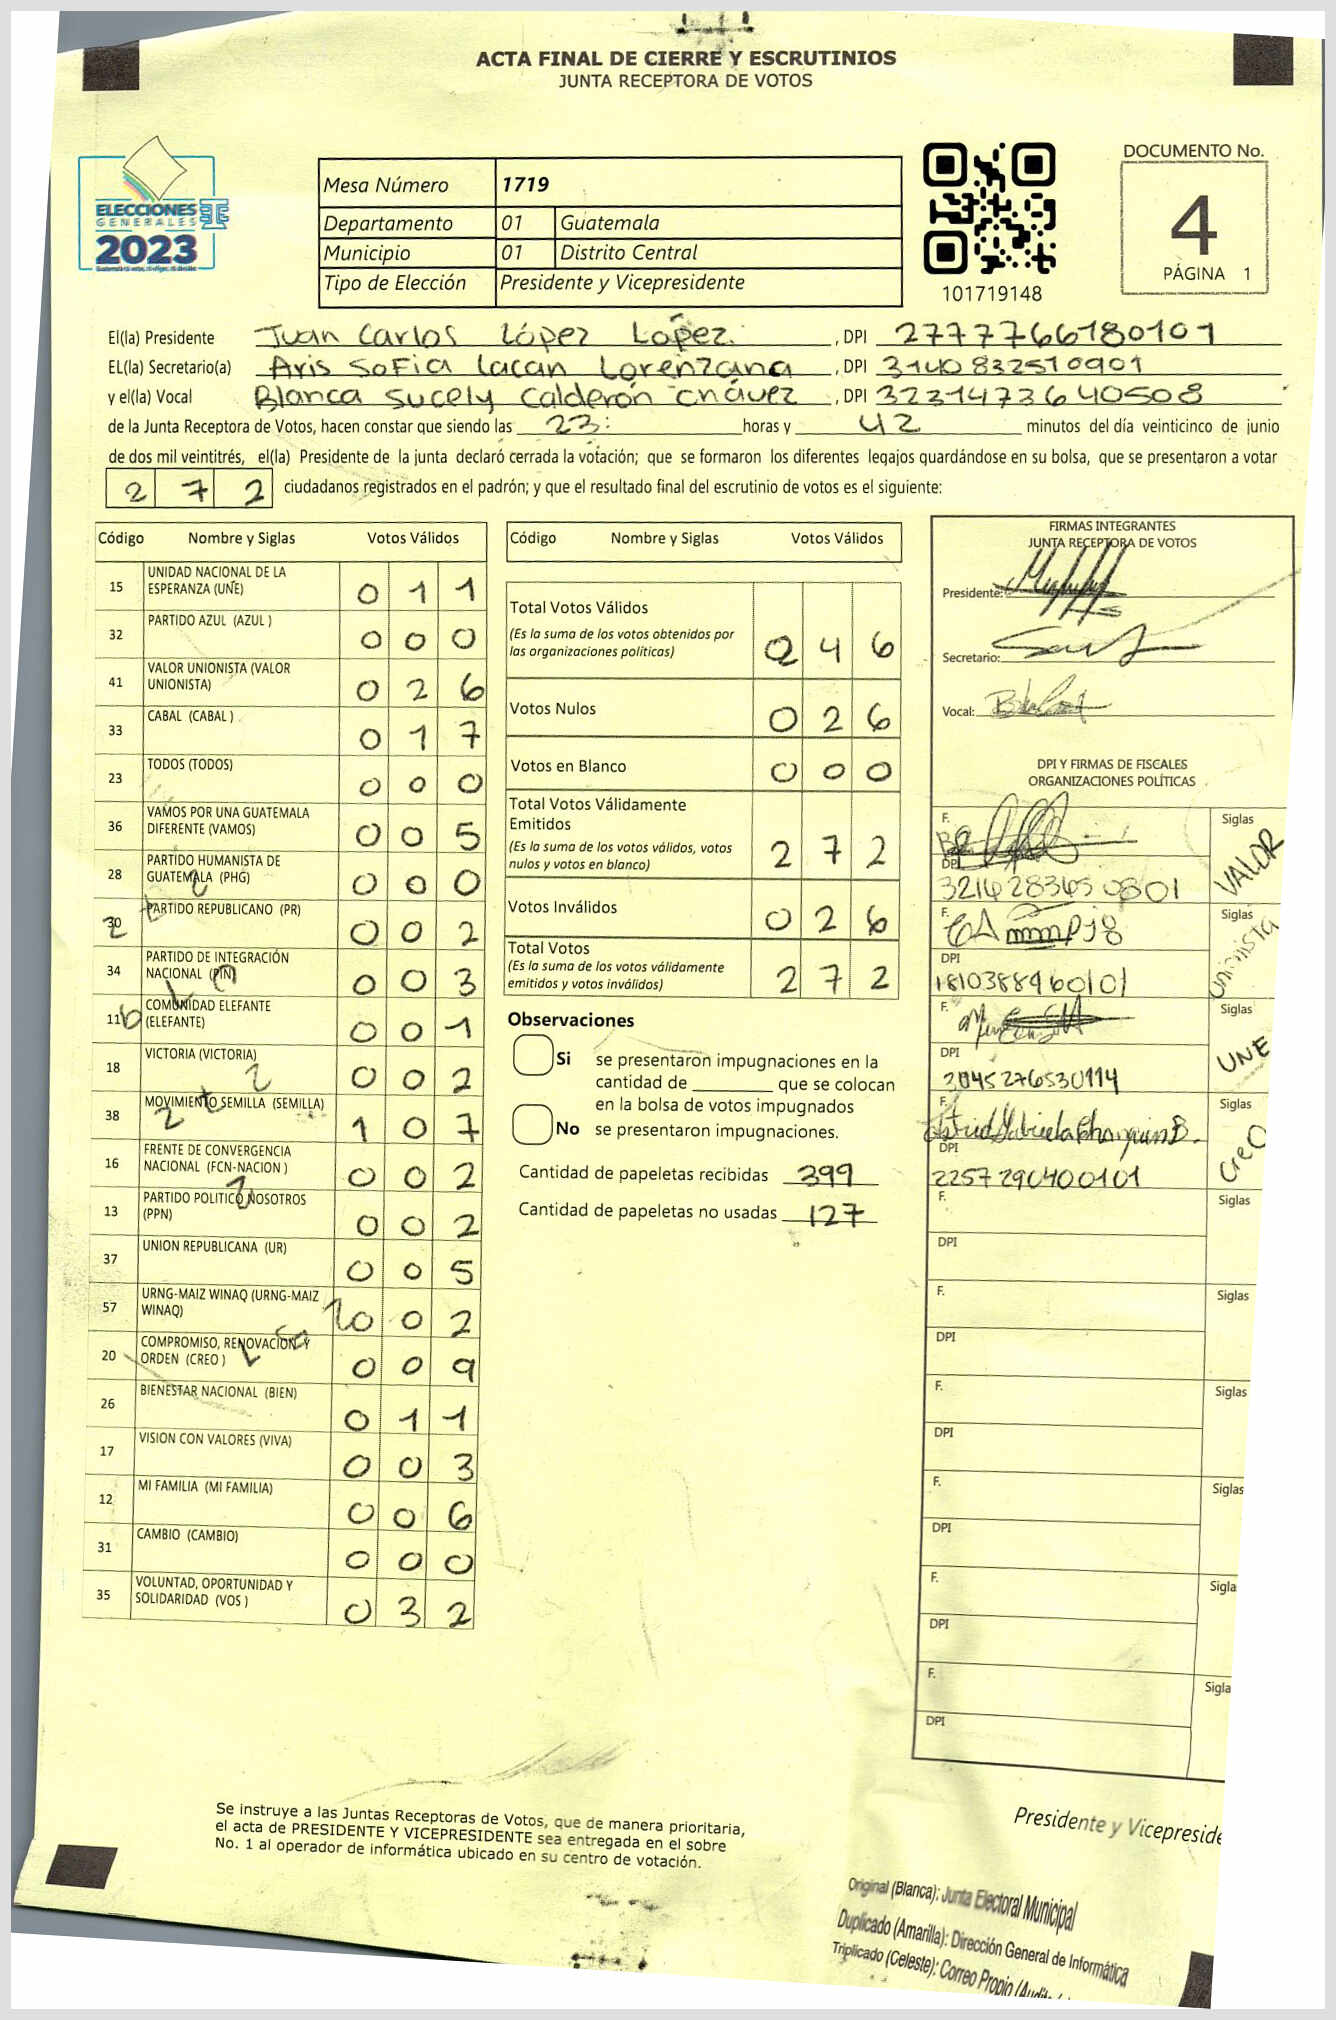 ACTA FINAL DE CIERRE Y ESCRUTINIOS
JUNTA RECEPTORA DE VOTOS
ELECCIONES
GENERALES
2023
Mesa Número 1719
Departamento 01 Guatemala
Municipio 01 Distrito Central
Tipo de Elección Presidente y Vicepresidente
101719148
DOCUMENTO No.
4
PÁGINA 1
El(la) Presidente Juan Carlos López López. , DPI 2777766180101
EL(la) Secretario(a) Aris Sofia Lacan Lorenzana , DPI 3140832510901
y el(la) Vocal Blanca Sucely Calderón Chávez , DPI 3231473640508
de la Junta Receptora de Votos, hacen constar que siendo las 23: horas y 42 minutos del día veinticinco de junio
de dos mil veintitrés, el(la) Presidente de la junta declaró cerrada la votación; que se formaron los diferentes legajos guardándose en su bolsa, que se presentaron a votar
2 7 2 ciudadanos registrados en el padrón; y que el resultado final del escrutinio de votos es el siguiente:
Código Nombre y Siglas Votos Válidos
15 UNIDAD NACIONAL DE LA ESPERANZA (UNE) 0 1 1
32 PARTIDO AZUL (AZUL ) 0 0 0
41 VALOR UNIONISTA (VALOR UNIONISTA) 0 2 6
33 CABAL (CABAL ) 0 1 7
23 TODOS (TODOS) 0 0 0
36 VAMOS POR UNA GUATEMALA DIFERENTE (VAMOS) 0 0 5
28 PARTIDO HUMANISTA DE GUATEMALA (PHG) 0 0 0
30 PARTIDO REPUBLICANO (PR) 0 0 2
34 PARTIDO DE INTEGRACIÓN NACIONAL (PIN) 0 0 3
11 COMUNIDAD ELEFANTE (ELEFANTE) 0 0 1
18 VICTORIA (VICTORIA) 0 0 2
38 MOVIMIENTO SEMILLA (SEMILLA) 1 0 7
16 FRENTE DE CONVERGENCIA NACIONAL (FCN-NACION ) 0 0 2
13 PARTIDO POLITICO NOSOTROS (PPN) 0 0 2
37 UNION REPUBLICANA (UR) 0 0 5
57 URNG-MAIZ WINAQ (URNG-MAIZ WINAQ) 0 0 2
20 COMPROMISO, RENOVACION Y ORDEN (CREO ) 0 0 9
26 BIENESTAR NACIONAL (BIEN) 0 1 1
17 VISION CON VALORES (VIVA) 0 0 3
12 MI FAMILIA (MI FAMILIA) 0 0 6
31 CAMBIO (CAMBIO) 0 0 0
35 VOLUNTAD, OPORTUNIDAD Y SOLIDARIDAD (VOS ) 0 3 2
Código Nombre y Siglas Votos Válidos
Total Votos Válidos 2 4 6
(Es la suma de los votos obtenidos por
las organizaciones políticas)
Votos Nulos 0 2 6
Votos en Blanco 0 0 0
Total Votos Válidamente
Emitidos 2 7 2
(Es la suma de los votos válidos, votos
nulos y votos en blanco)
Votos Inválidos 0 2 6
Total Votos 2 7 2
(Es la suma de los votos válidamente
emitidos y votos inválidos)
Observaciones
Si se presentaron impugnaciones en la
cantidad de ________ que se colocan
en la bolsa de votos impugnados
No se presentaron impugnaciones.
Cantidad de papeletas recibidas 399
Cantidad de papeletas no usadas 127
FIRMAS INTEGRANTES
JUNTA RECEPTORA DE VOTOS
Presidente:
Secretario:
Vocal:
DPI Y FIRMAS DE FISCALES
ORGANIZACIONES POLÍTICAS
F. Siglas VALOR
DPI
3216283650801
F. Siglas Unionista
DPI
1810388960101
F. Siglas UNE
DPI
3045276530114
F. Siglas Creo
DPI
2257290400101
F. Siglas
DPI
F. Siglas
DPI
F. Siglas
DPI
F. Siglas
DPI
F. Sigla
DPI
F. Sigla
DPI
Se instruye a las Juntas Receptoras de Votos, que de manera prioritaria,
el acta de PRESIDENTE Y VICEPRESIDENTE sea entregada en el sobre
No. 1 al operador de informática ubicado en su centro de votación.
Presidente y Vicepreside
Original (Blanca): Junta Electoral Municipal
Duplicado (Amarilla): Dirección General de Informática
Triplicado (Celeste): Correo Propio